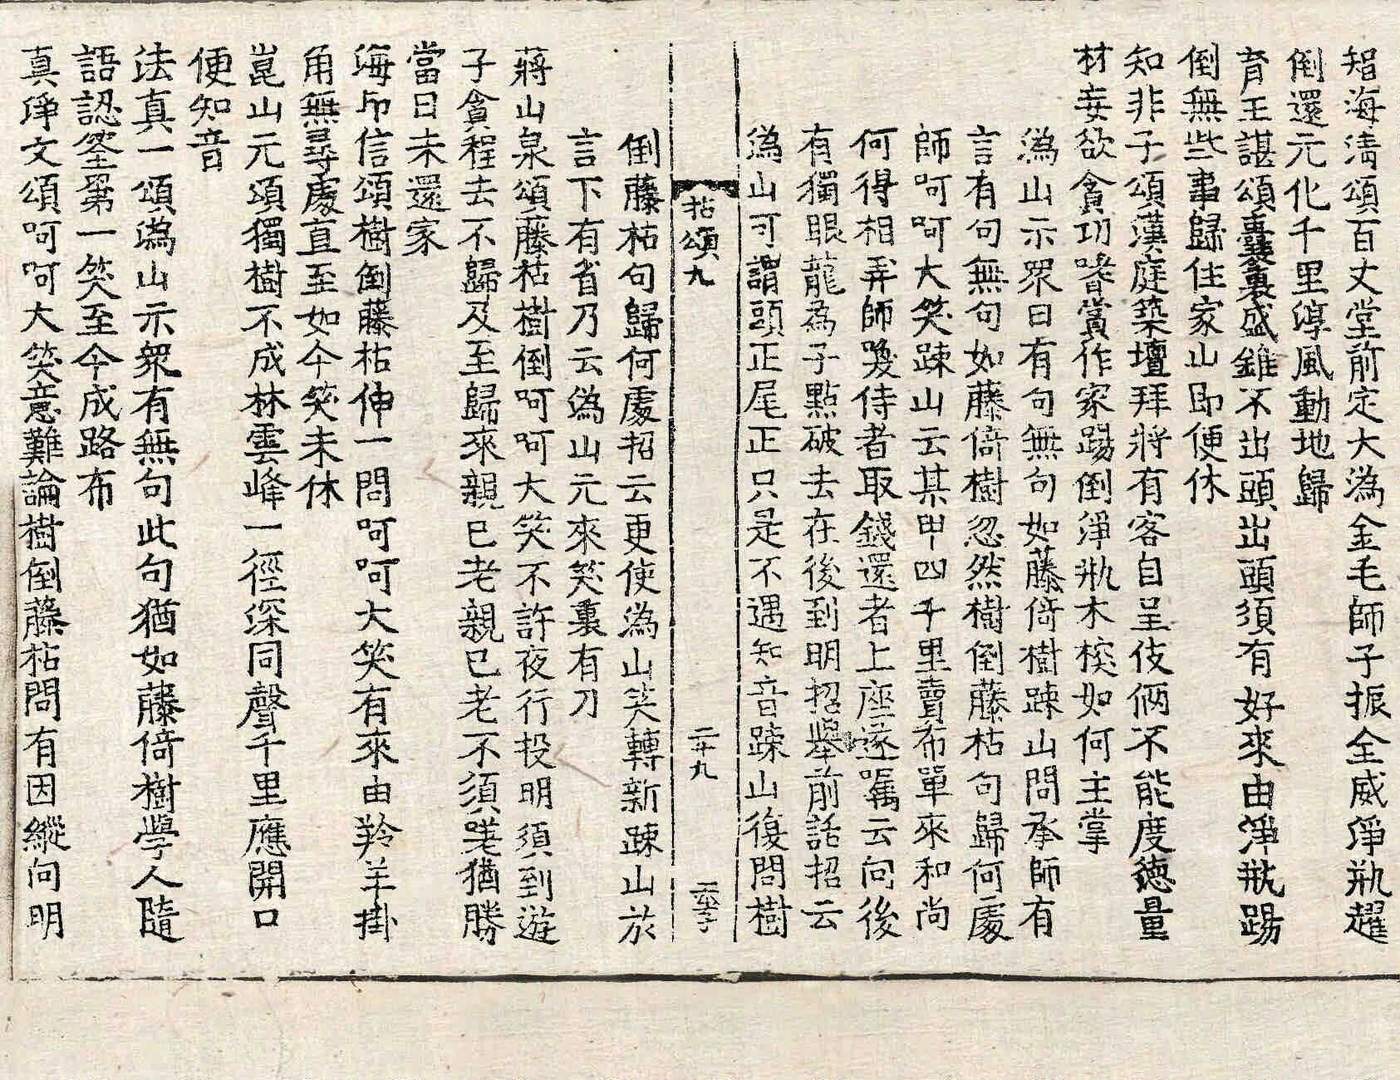 智海清頌百丈堂前定大潙金毛師子振全威淨瓶趯
倒還元化千里淳風動地歸
育王諶頌囊裏盛錐不出頭出頭須有好來由淨瓶踢
倒無些事歸住家山即便休
知非子頌漢庭築壇拜將有客自呈伎倆不能度德量
材妄欲貪功嗜賞作家踢倒淨瓶木㮇如何主掌
潙山示眾曰有句無句如藤倚樹踈山問承師有
言有句無句如藤倚樹忽然樹倒藤枯句歸何處
師呵呵大笑踈山云某甲四千里賣布單來和尚
何得相弄師喚侍者取錢還者上座遂囑云向後
有獨眼龍為子點破去在後到明招舉前話招云
潙山可謂頭正尾正只是不遇知音踈山復問樹
拈頌九 二十九
倒藤枯句歸何處招云更使潙山笑轉新踈山於
言下有省乃云潙山元來笑裏有刀
蔣山泉頌藤枯樹倒呵呵大笑不許夜行投明須到遊
子貪程去不歸及至歸來親已老親已老不須嗟猶勝
當日未還家
海印信頌樹倒藤枯伸一問呵呵大笑有來由羚羊掛
角無尋處直至如今笑未休
崑山元頌獨樹不成林雲峰一徑深同聲千里應開口
便知音
法真一頌潙山示眾有無句此句猶如藤倚樹學人隨
語認筌第一笑至今成路布
真淨文頌呵呵大笑意難論樹倒藤枯問有因縱向明